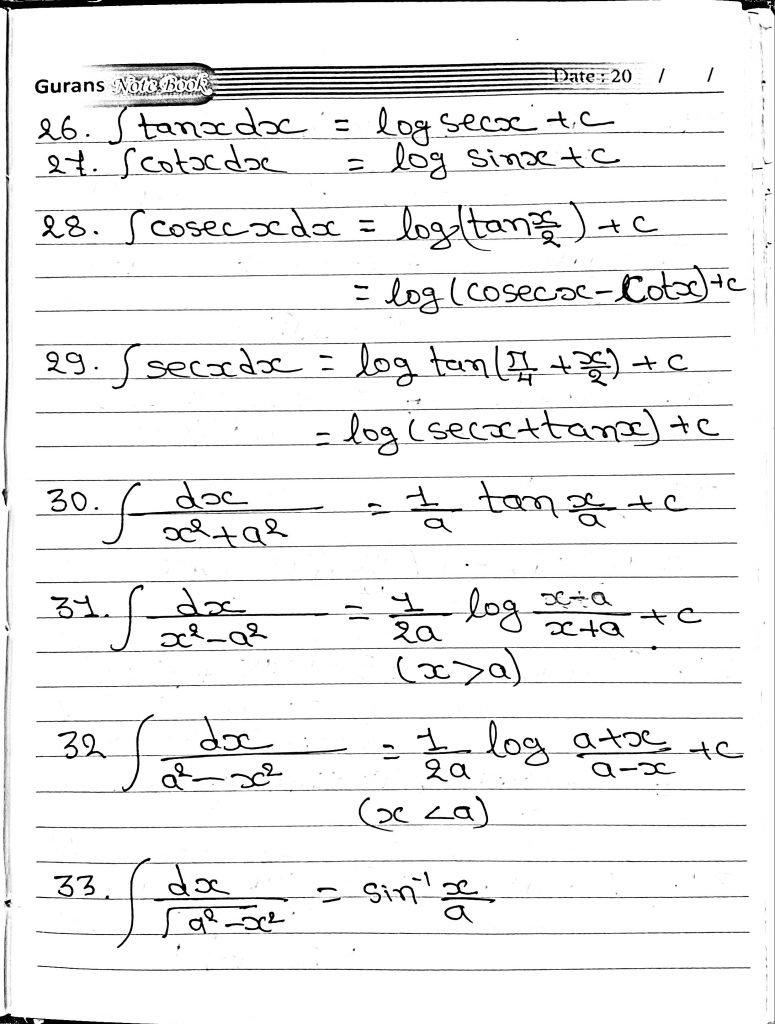 Gurans Note Book Date : 20 / /
26. ∫tanxdx = log secx + c
27. ∫cotxdx = log sinx + c
28. ∫cosecxdx = log(tan x/2) + c
= log(cosecx-Cotx)+c
29. ∫secxdx = log tan(π/4 + x/2) + c
= log(secx+tanx)+c
30. ∫ dx/(x²+a²) = 1/a tan x/a + c
31. ∫ dx/(x²-a²) = 1/2a log (x-a)/(x+a) + c
(x>a)
32 ∫ dx/(a²-x²) = 1/2a log (a+x)/(a-x) + c
(x<a)
33. ∫ dx/√(a²-x²) = sin⁻¹ x/a